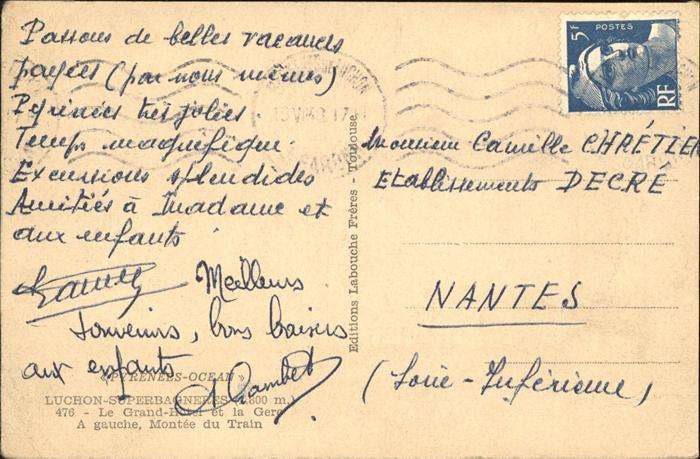 Passons de belles vacances
payées (par nous mêmes)
Pyrénées très jolies
Temps magnifique.
Excursions splendides
Amitiés à Madame et
aux enfants
Meilleurs
souvenirs, bons baisers
aux enfants
"PYRÉNÉES-OCÉAN"
LUCHON-SUPERBAGNÈRES (1.800 m.)
476 - Le Grand-Hôtel et la Gare
A gauche, Montée du Train
Editions Labouche Frères - Toulouse
5F POSTES
RF
Monsieur Camille CHRÉTIEN
Etablissements DECRÉ
NANTES
(Loire-Inférieure)